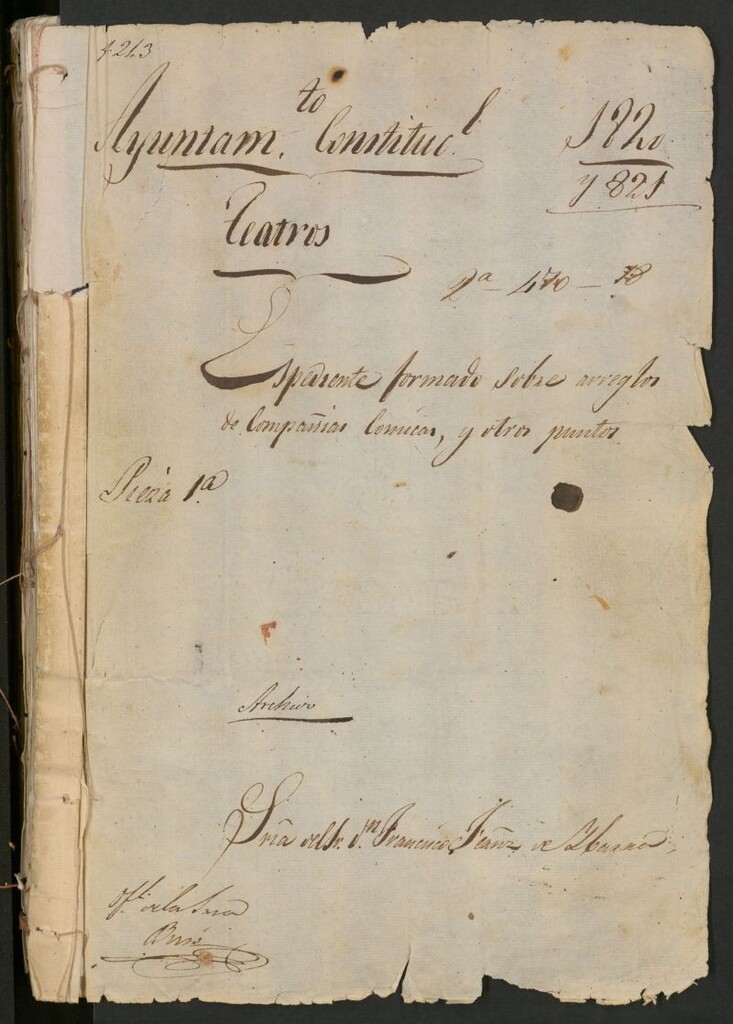 f 213
Ayuntam.to Constituc.l
1820
y 821
Teatros
2a - 470 - 18
Espediente formado sobre arreglos
de Compañias Comicas, y otros puntos.
Pieza 1.a
Archivo
Sria del Sr. Dn Francisco Fernz de Ybarra
Ofl. de la Sria